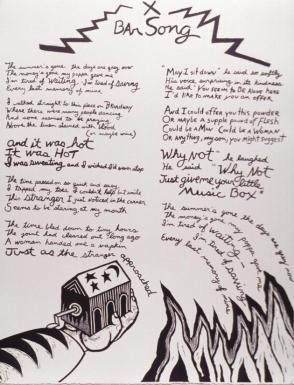 X
BAr SonG
The summer's gone. the days are grey now
The money's gone my poppa gave me
I'm tired of waiting. I'm tired of saving
Every last memory of mine
I walked straight to this place on Broadway
Where there were many people dancing
And some seemed to be praying
Above the linen stained with blood
(or maybe wine)
and it was hot
It was HOT
I was sweating and I wished I'd worn
The time passed
I tapped my toes I couldn't help but smile
This stranger I just noticed in the corner
Seems to be staring at my mouth
The time bled down to tiny hours
The joint had cleared out long ago
A woman handed out a napkin
Just as the stranger approached
"May I sit down" he said so softly
His voice surprising in its kindness
He said "You seem to be Alone here
I'd like to make you an offer
And I could offer you this powder
Or maybe a supple pound of flesh
Could be a Man Could be a Woman
Or Anything, my son, you might suggest"
"Why Not" he laughed
I said "Why Not
Just give me your little
Music Box"
The summer's gone the days are grey now
The money's gone my poppa gave me
I'm tired of waiting
I'm tired of saving
Every last memory of mine